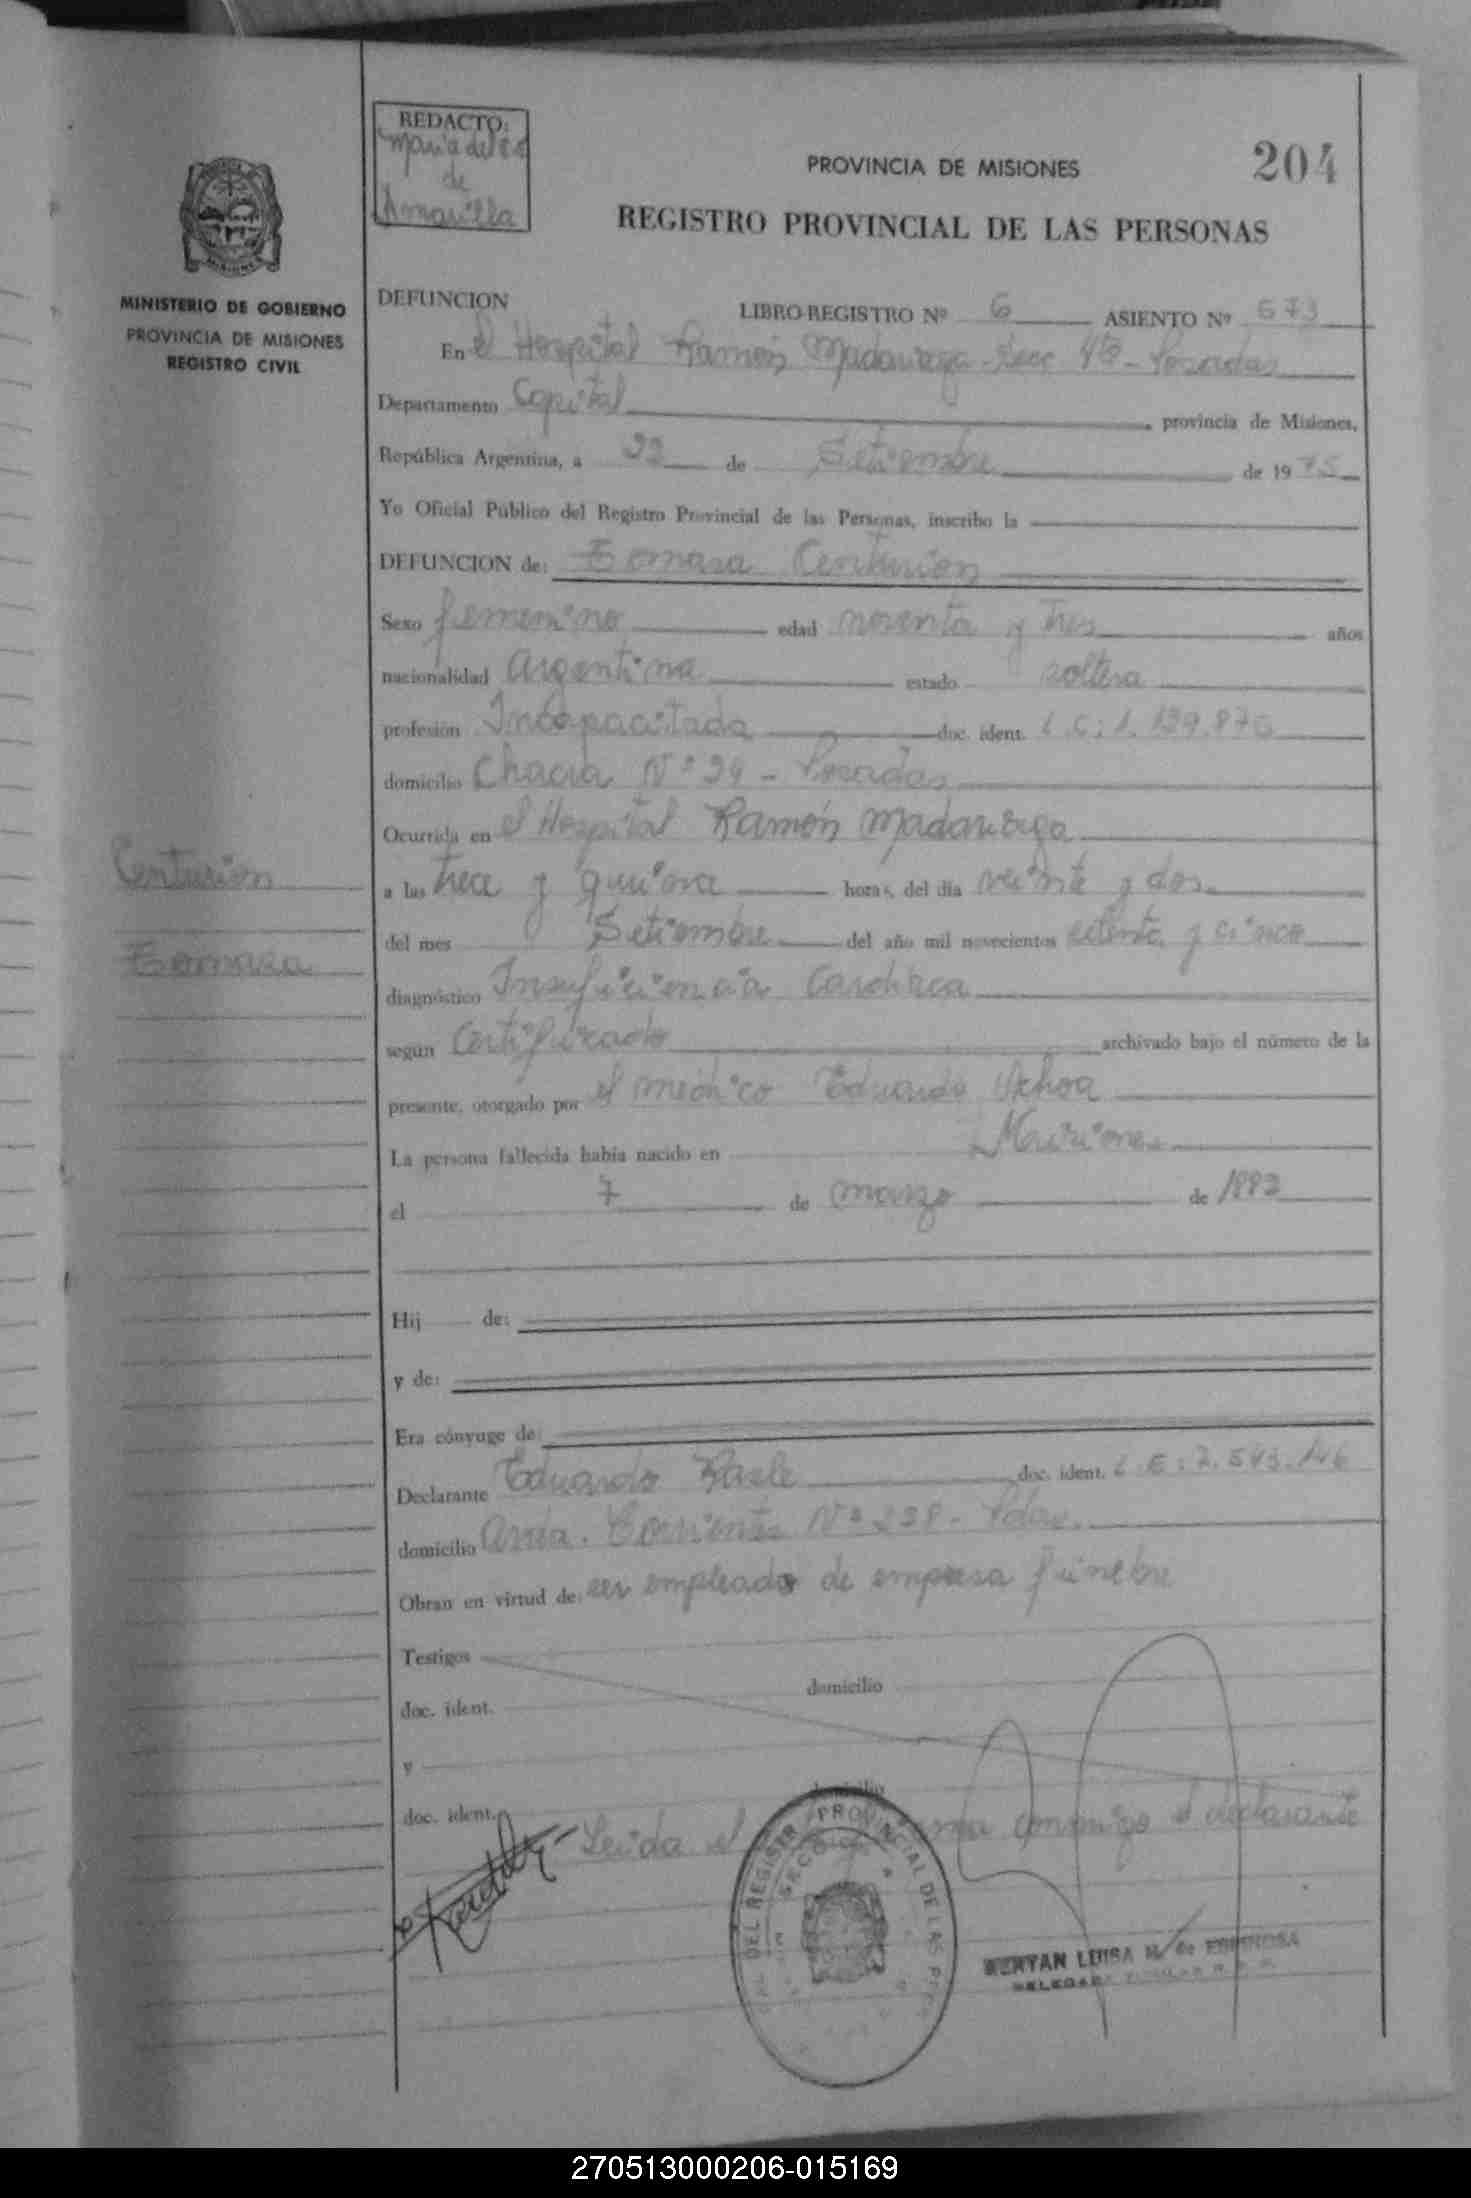 REDACTO:
Maria del
de
Amarilla
PROVINCIA DE MISIONES
204
REGISTRO PROVINCIAL DE LAS PERSONAS
MINISTERIO DE GOBIERNO
PROVINCIA DE MISIONES
REGISTRO CIVIL
DEFUNCION LIBRO-REGISTRO Nº 6 ASIENTO Nº 673
En el Hospital Ramón Madariaga - Secc 4ta - Posadas
Departamento Capital, provincia de Misiones,
República Argentina, a 22 de Setiembre de 1975
Yo Oficial Público del Registro Provincial de las Personas, inscribo la
DEFUNCION de: Tomasa Centurión
Sexo femenino edad noventa y tres años
nacionalidad Argentina estado soltera
profesión Incapacitada doc. ident. L.C: 1.139.876
domicilio Chacra Nº 34 - Posadas
Ocurrida en el Hospital Ramón Madariaga
Centurión
a las trece y quince horas, del día veinte y dos
del mes Setiembre del año mil novecientos setenta y cinco
Tomasa
diagnóstico Insuficiencia Cardíaca
según Certificado archivado bajo el número de la
presente, otorgado por el médico Eduardo Ochoa
La persona fallecida había nacido en Misiones
el 7 de marzo de 1882
Hij de:
y de:
Era cónyuge de:
Declarante Eduardo doc. ident. L.E: 7.543.146
domicilio Avda. Corrientes Nº 238 - Pdas.
Obran en virtud de: ser empleado de empresa fúnebre
Testigos
domicilio
doc. ident.
y
domicilio
doc. ident.
Leida el firma conmigo el declarante
DEL REGISTR PROVINCIAL DE LAS PER
SECCION
LUISA M. de ESPINOSA
270513000206-015169